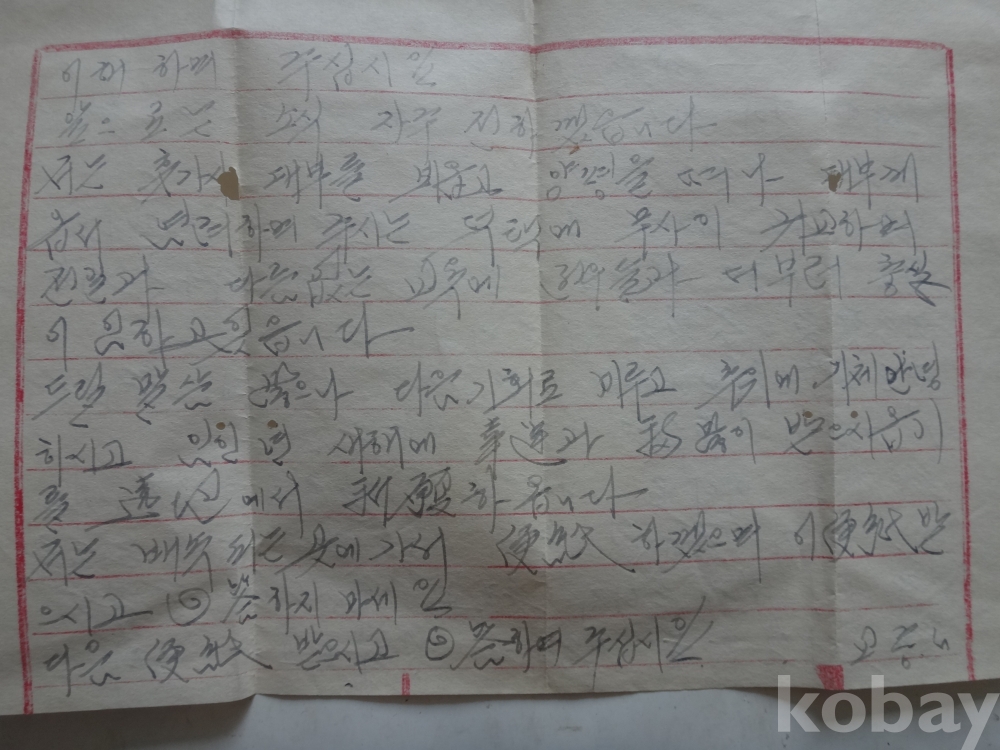 이해 하며 주십시요
앞으로는 소식 자주 전하겠습니다
저는 휴가시 대부를 뵈옵고 고향을 떠나 대부께
읍서 염려하며 주시는 덕택에 무사이 귀교하여
전일과 다름없는 교육에 전우들과 더부러 충실
이 임하고있습니다
드릴 말슴 많으나 다음기회로 미루고 추위에 기체안녕
하시고 임인년 새해에 幸運과 福 많이 받으시옵기
를 遠 에서 祈願하옵니다
저는 배속되는 곳에가서 便紙 하겠으며 이便紙받
으시고 回答하지 마세요
다음 便紙 받으시고 回答하여 주십시요
kobay